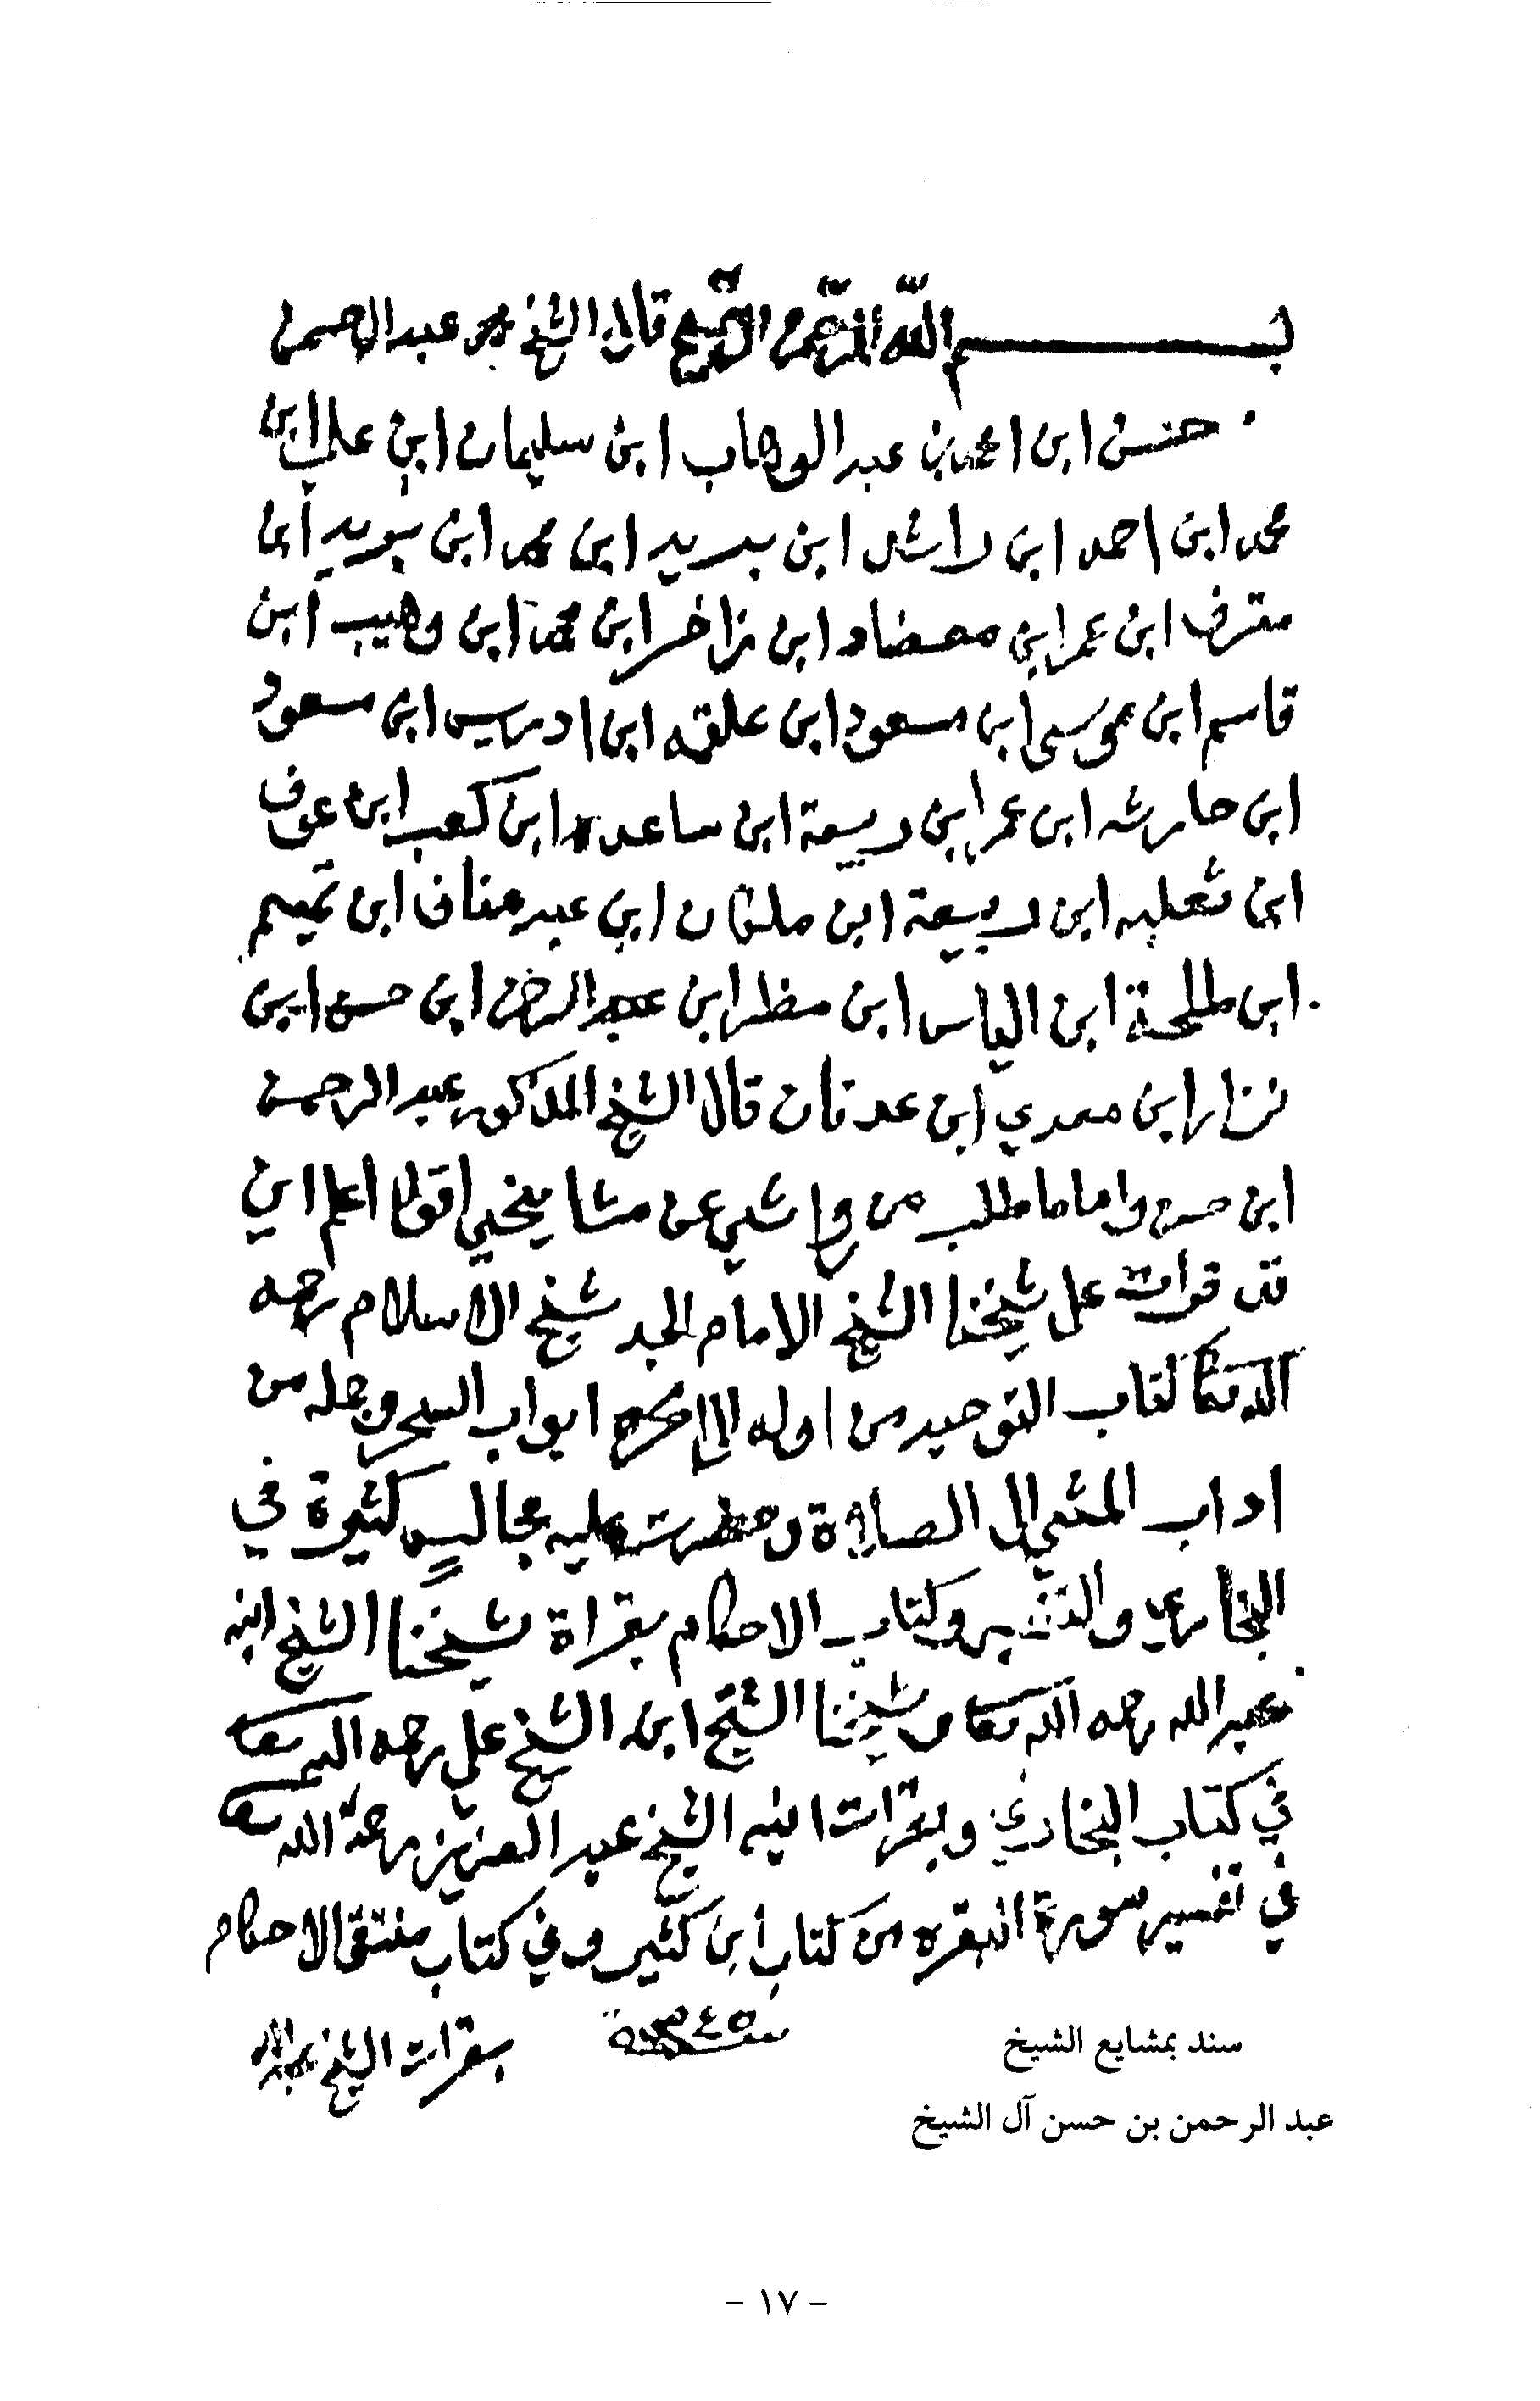 بسم الله الرحمن الرحيم قال الشيخ عبد الرحمن
حسن ابن محمد بن عبد الوهاب ابن سليمان ابن علي ابن
محمد ابن احمد ابن راشد ابن بريد ابن محمد ابن بريد ابن
مشرف ابن عمر ابن معضاد ابن زاخر ابن محمد ابن وهيب ابن
قاسم ابن موسى ابن مسعود ابن علقه ابن ادريس ابن مسعود
ابن حارثه ابن عمر ابن ربيعة ابن ساعده ابن كعب ابن عوف
ابن ثعلبه ابن ربيعة ابن ملتان ابن عبد مناف ابن تميم
ابن طلحة ابن الياس ابن مظر ابن عبد الرحمن ابن حسن ابن
نزار ابن معدي ابن عدنان قال الشيخ المذكور عبد الرحمن
ابن حسن واما ما طلب من عن مشايخي اقول اعلم اني
قد قرات على شيخنا الشيخ الامام الجد شيخ الاسلام رحمه
الله تعالى كتاب التوحيد من اوله الى ابواب السحر وجمله من
اداب المشي الى الصلاة وحظرت عليه مجالس كثيرة في
البخاري والتفسير وكتاب الاحكام بقراة شيخنا الشيخ ابنه
عبد الله رحمه الله تعالى وشيخنا الشيخ ابنه الشيخ علي رحمه الله تعالى
في كتاب البخاري وبقرات ابنه الشيخ عبد العزيز رحمة الله تعالى
في تفسير سورة البقره من كتاب ابن كثير وفي كتاب منتقى الاحكام
بقرات الشيخ عبد الله
سند بمشايع الشيخ
عبد الرحمن بن حسن آل الشيخ
- ١٧ -